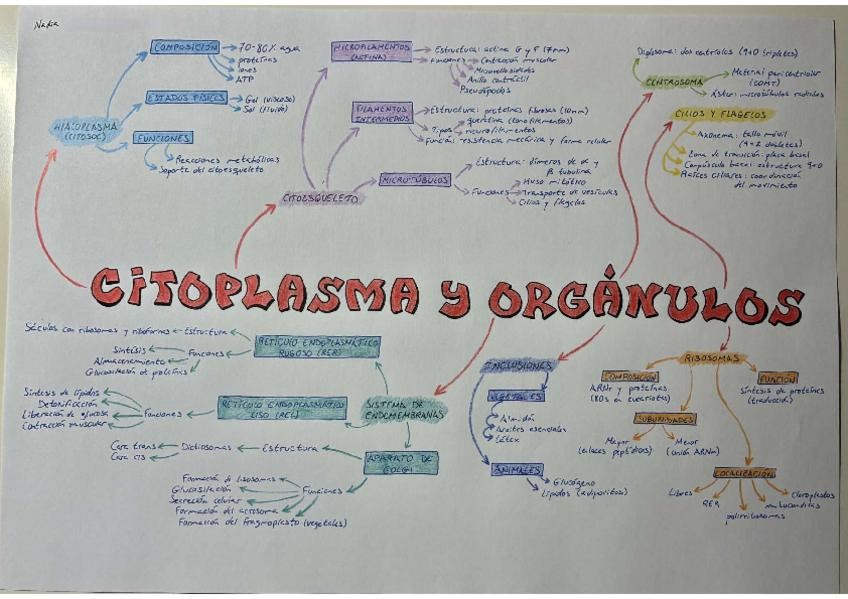 Nadia
COMPOSICIÓN
70-80% agua
proteínas
iones
ATP
ESTADOS FÍSICOS
Gel (viscoso)
Sol (fluido)
HIALOPLASMA
(CITOSOL)
FUNCIONES
Reacciones metabólicas
Soporte del citoesqueleto
MICROFILAMENTOS
(ACTINA)
Estructura: actina G y F (7nm)
Funciones
Contracción muscular
Microvellosidades
Anillo contráctil
Pseudópodos
FILAMENTOS
INTERMEDIOS
Estructura: proteínas fibrosas (10nm)
Tipos
queratina (tonofilamentos)
neurofilamentos
Función: resistencia mecánica y forma celular
CITOESQUELETO
MICROTÚBULOS
Estructura: dímeros de α y
β tubulina
Funciones
Huso mitótico
Transporte de vesículas
Cilios y flagelos
Diplosoma: dos centriolos (9+0 tripletes)
CENTROSOMA
Material pericentriolar
(COMT)
Áster: microtúbulos radiales
CILIOS Y FLAGELOS
Axonema: tallo móvil
(9+2 dobletes)
Zona de transición: placa basal
Corpúsculo basal: estructura 9+0
Raíces ciliares: coordinación
del movimiento
CITOPLASMA Y ORGÁNULOS
Sáculos con ribosomas y riboforinas
Estructura
RETÍCULO ENDOPLASMÁTICO
RUGOSO (RER)
Síntesis
Almacenamiento
Glucosilación de proteínas
Funciones
Síntesis de lípidos
Detoxificación
Liberación de glucosa
Contracción muscular
Funciones
RETÍCULO ENDOPLASMÁTICO
LISO (REL)
SISTEMA DE
ENDOMEMBRANAS
Cara trans
Cara cis
Dictiosomas
Estructura
APARATO DE
GOLGI
Formación de lisosomas
Glucosilación
Secreción celular
Formación del acrosoma
Formación del fragmoplasto (vegetales)
Funciones
INCLUSIONES
VEGETALES
Almidón
Aceites esenciales
Látex
ANIMALES
Glucógeno
Lípidos (adipocitos)
RIBOSOMAS
COMPOSICIÓN
ARNr y proteínas
(80s en eucariotas)
FUNCIÓN
Síntesis de proteínas
(traducción)
SUBUNIDADES
Mayor
(enlaces peptídicos)
Menor
(unión ARNm)
LOCALIZACIÓN
Libres
RER
polirribosomas
mitocondrias
Cloroplastos